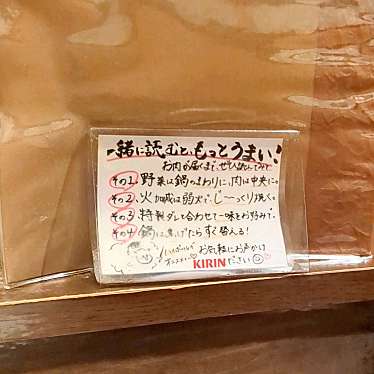 一緒に読むと、もっとうまい!
お肉が届くまで、ぜひ読んでみて
その1、野菜は鍋のまわりに、肉は中央に。
その2、火加減は弱火で、じーっくり焼く。
その3、特製ダレと合わせて一味をお好みで。
その4、鍋は焦げたらすぐ替える!
お気軽にお声かけ
KIRIN ださい